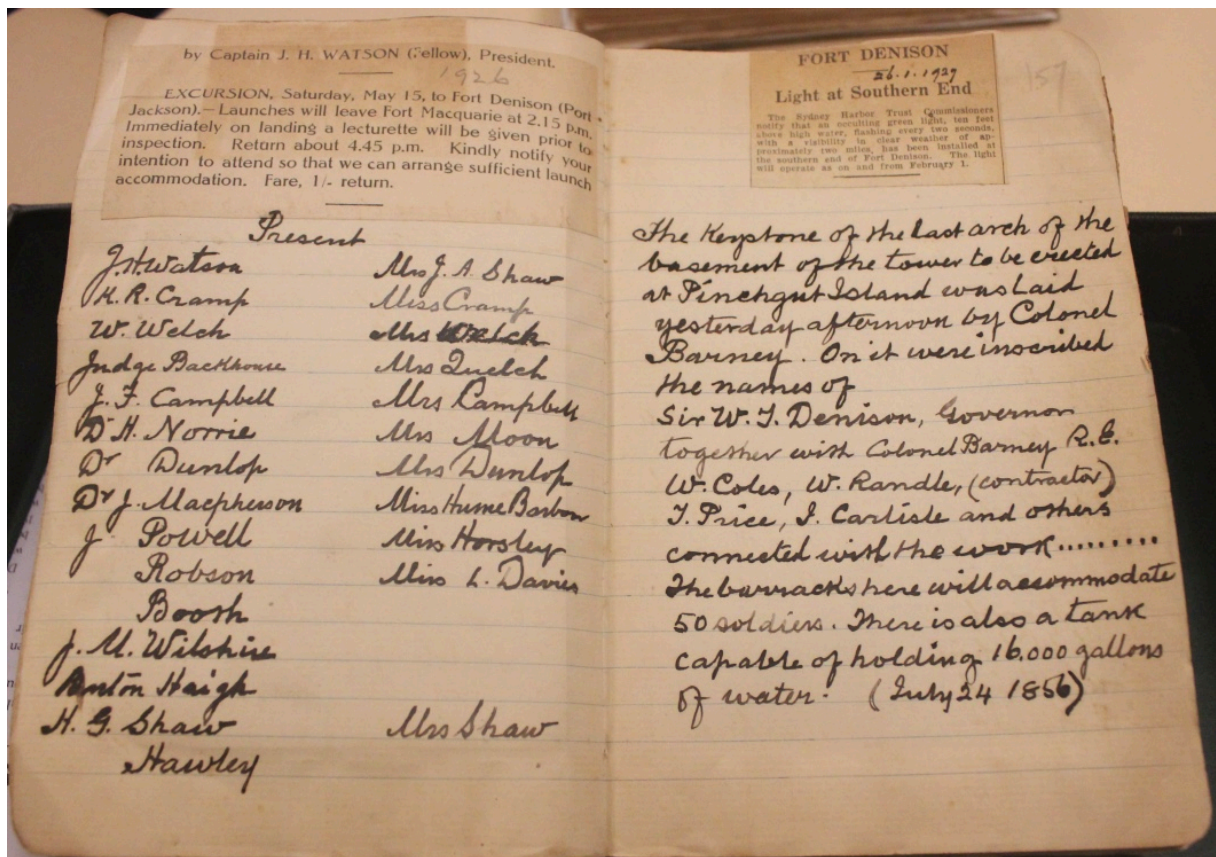 by Captain J. H. WATSON (Fellow), President.
1926
EXCURSION, Saturday, May 15, to Fort Denison (Port
Jackson).—Launches will leave Fort Macquarie at 2.15 p.m.
Immediately on landing a lecturette will be given prior to
inspection. Return about 4.45 p.m. Kindly notify your
intention to attend so that we can arrange sufficient launch
accommodation. Fare, 1/- return.
Present
J. H. Watson Mrs J. A. Shaw
K. R. Cramp Miss Cramp
W. Welch Mrs Welch
Judge Backhouse Mrs Quelch
J. F. Campbell Mrs Campbell
Dr H. Norrie Mrs Moon
Dr Dunlop Mrs Dunlop
Dr J. Macpherson Miss Hume Barbour
J. Powell Miss Horsley
Robson Miss L. Davies
Booth
J. M. Wilshire
Haigh
H. G. Shaw Mrs Shaw
Hawley
157
FORT DENISON
26.1.1927
Light at Southern End
The Sydney Harbor Trust Commissioners
notify that an occulting green light, ten feet
above high water, flashing every two seconds,
with a visibility in clear weather of ap-
proximately two miles, has been installed at
the southern end of Fort Denison. The light
will operate as on and from February 1.
The Keystone of the last arch of the
basement of the tower to be erected
at Pinchgut Island was laid
yesterday afternoon by Colonel
Barney. On it were inscribed
the names of
Sir W. T. Denison, Governor
together with Colonel Barney R.E.
W. Coles, W. Randle, (contractor)
T. Price, J. Carlisle and others
connected with the work.........
The barracks here will accommodate
50 soldiers. There is also a tank
capable of holding 16.000 gallons
of water. (July 24 1856)